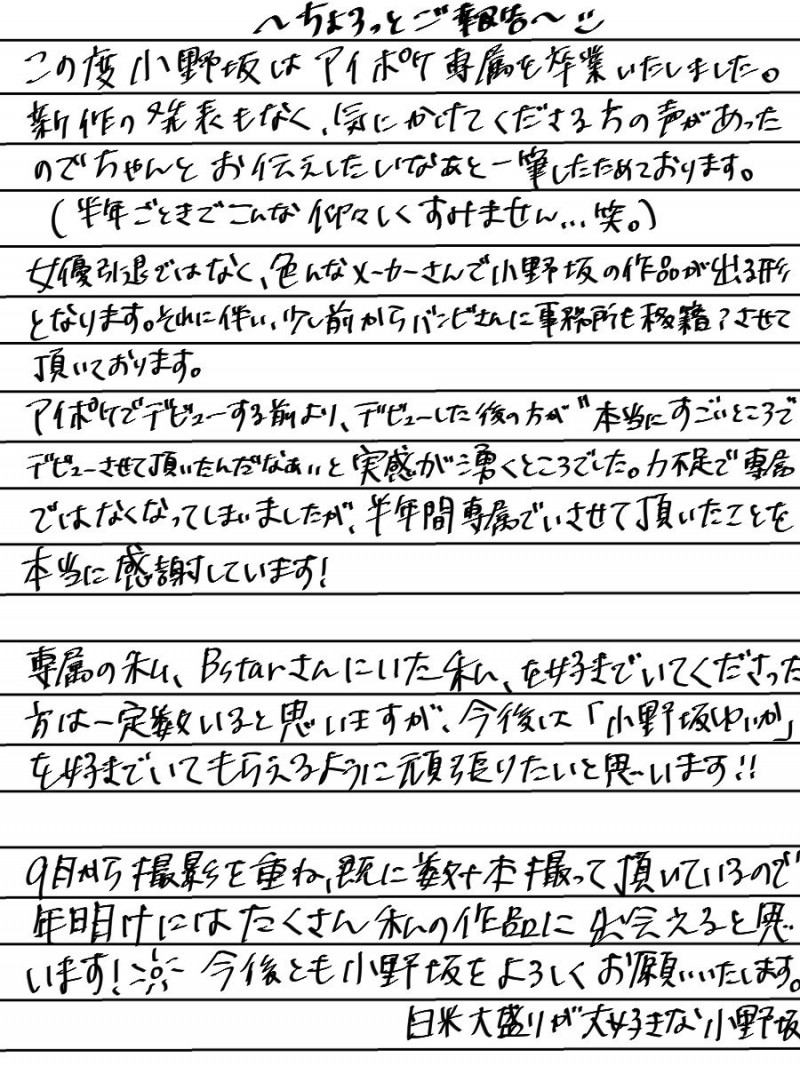 〜ちょろっとご報告〜
この度小野坂はアイポケ専属を卒業いたしました。
新作の発表もなく、気にかけてくださる方の声があった
のでちゃんとお伝えしたいなあと一筆したためております。
(半年ごときでこんな仰々しくすみません...笑。)
女優引退ではなく、色んなメーカーさんで小野坂の作品が出る形
となります。それに伴い、少し前からバンビさんに事務所も移籍?させて
頂いております。
アイポケでデビューする前より、デビューした後の方が〝本当にすごいところで
デビューさせて頂いたんだなぁぃと実感が湧くところでした。力不足で専属
ではなくなってしまいましたが、半年間専属でいさせて頂いたことを
本当に感謝しています!
専属の私、Bstarさんにいた私、を好きでいてくださった
方は一定数いると思いますが、今後は「小野坂ゆいか」
を好きでいてもらえるように頑張りたいと思います!!
9月から撮影を重ね、既に数十本撮って頂いているので
年明けにはたくさん私の作品に出会えると思
います! 今後とも小野坂をよろしくお願いいたします。
白米大盛りが大好きな小野坂